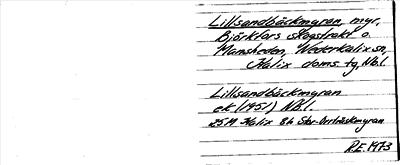 Lillsandbäckmyran, myr,
Björkfors skogstrakt o.
Mansheden, Nederkalix sn,
Kalix doms. tg, Nbl.
Lillsandbäckmyran
ek (1951) Nbl.
25M Kalix 8h Stor-Orrträskmyran
R.E. 1973